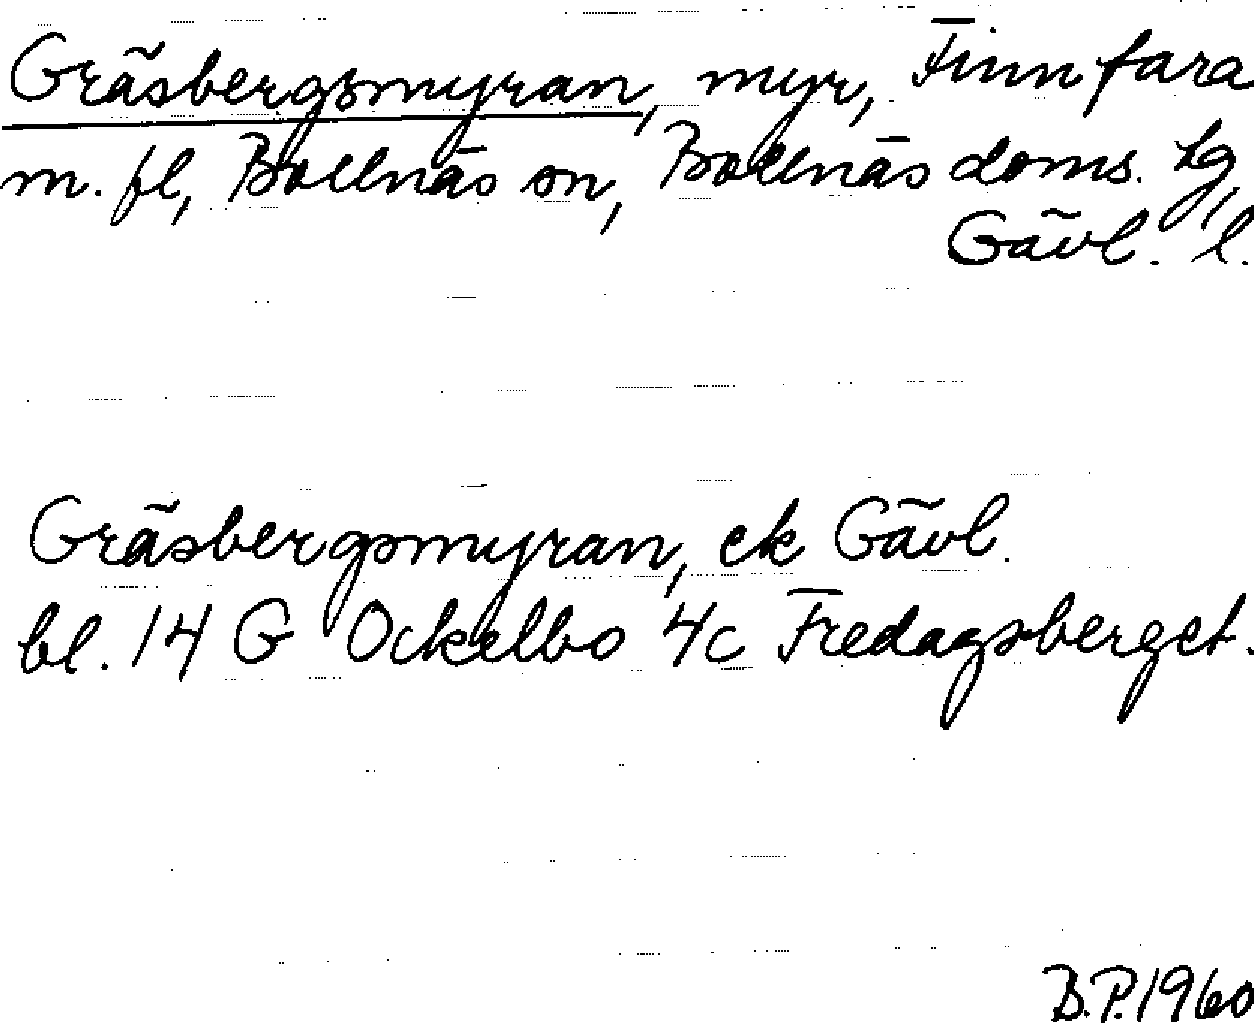 Gräsbergsmyran, myr, Finnfara
m. fl, Bollnäs sn, Bollnäs doms. Lg,
Gävl. l.
Gräsbergsmyran, ek Gävl.
bl. 14 G Ockelbo 4c Fredagsberget.
B.P. 1960